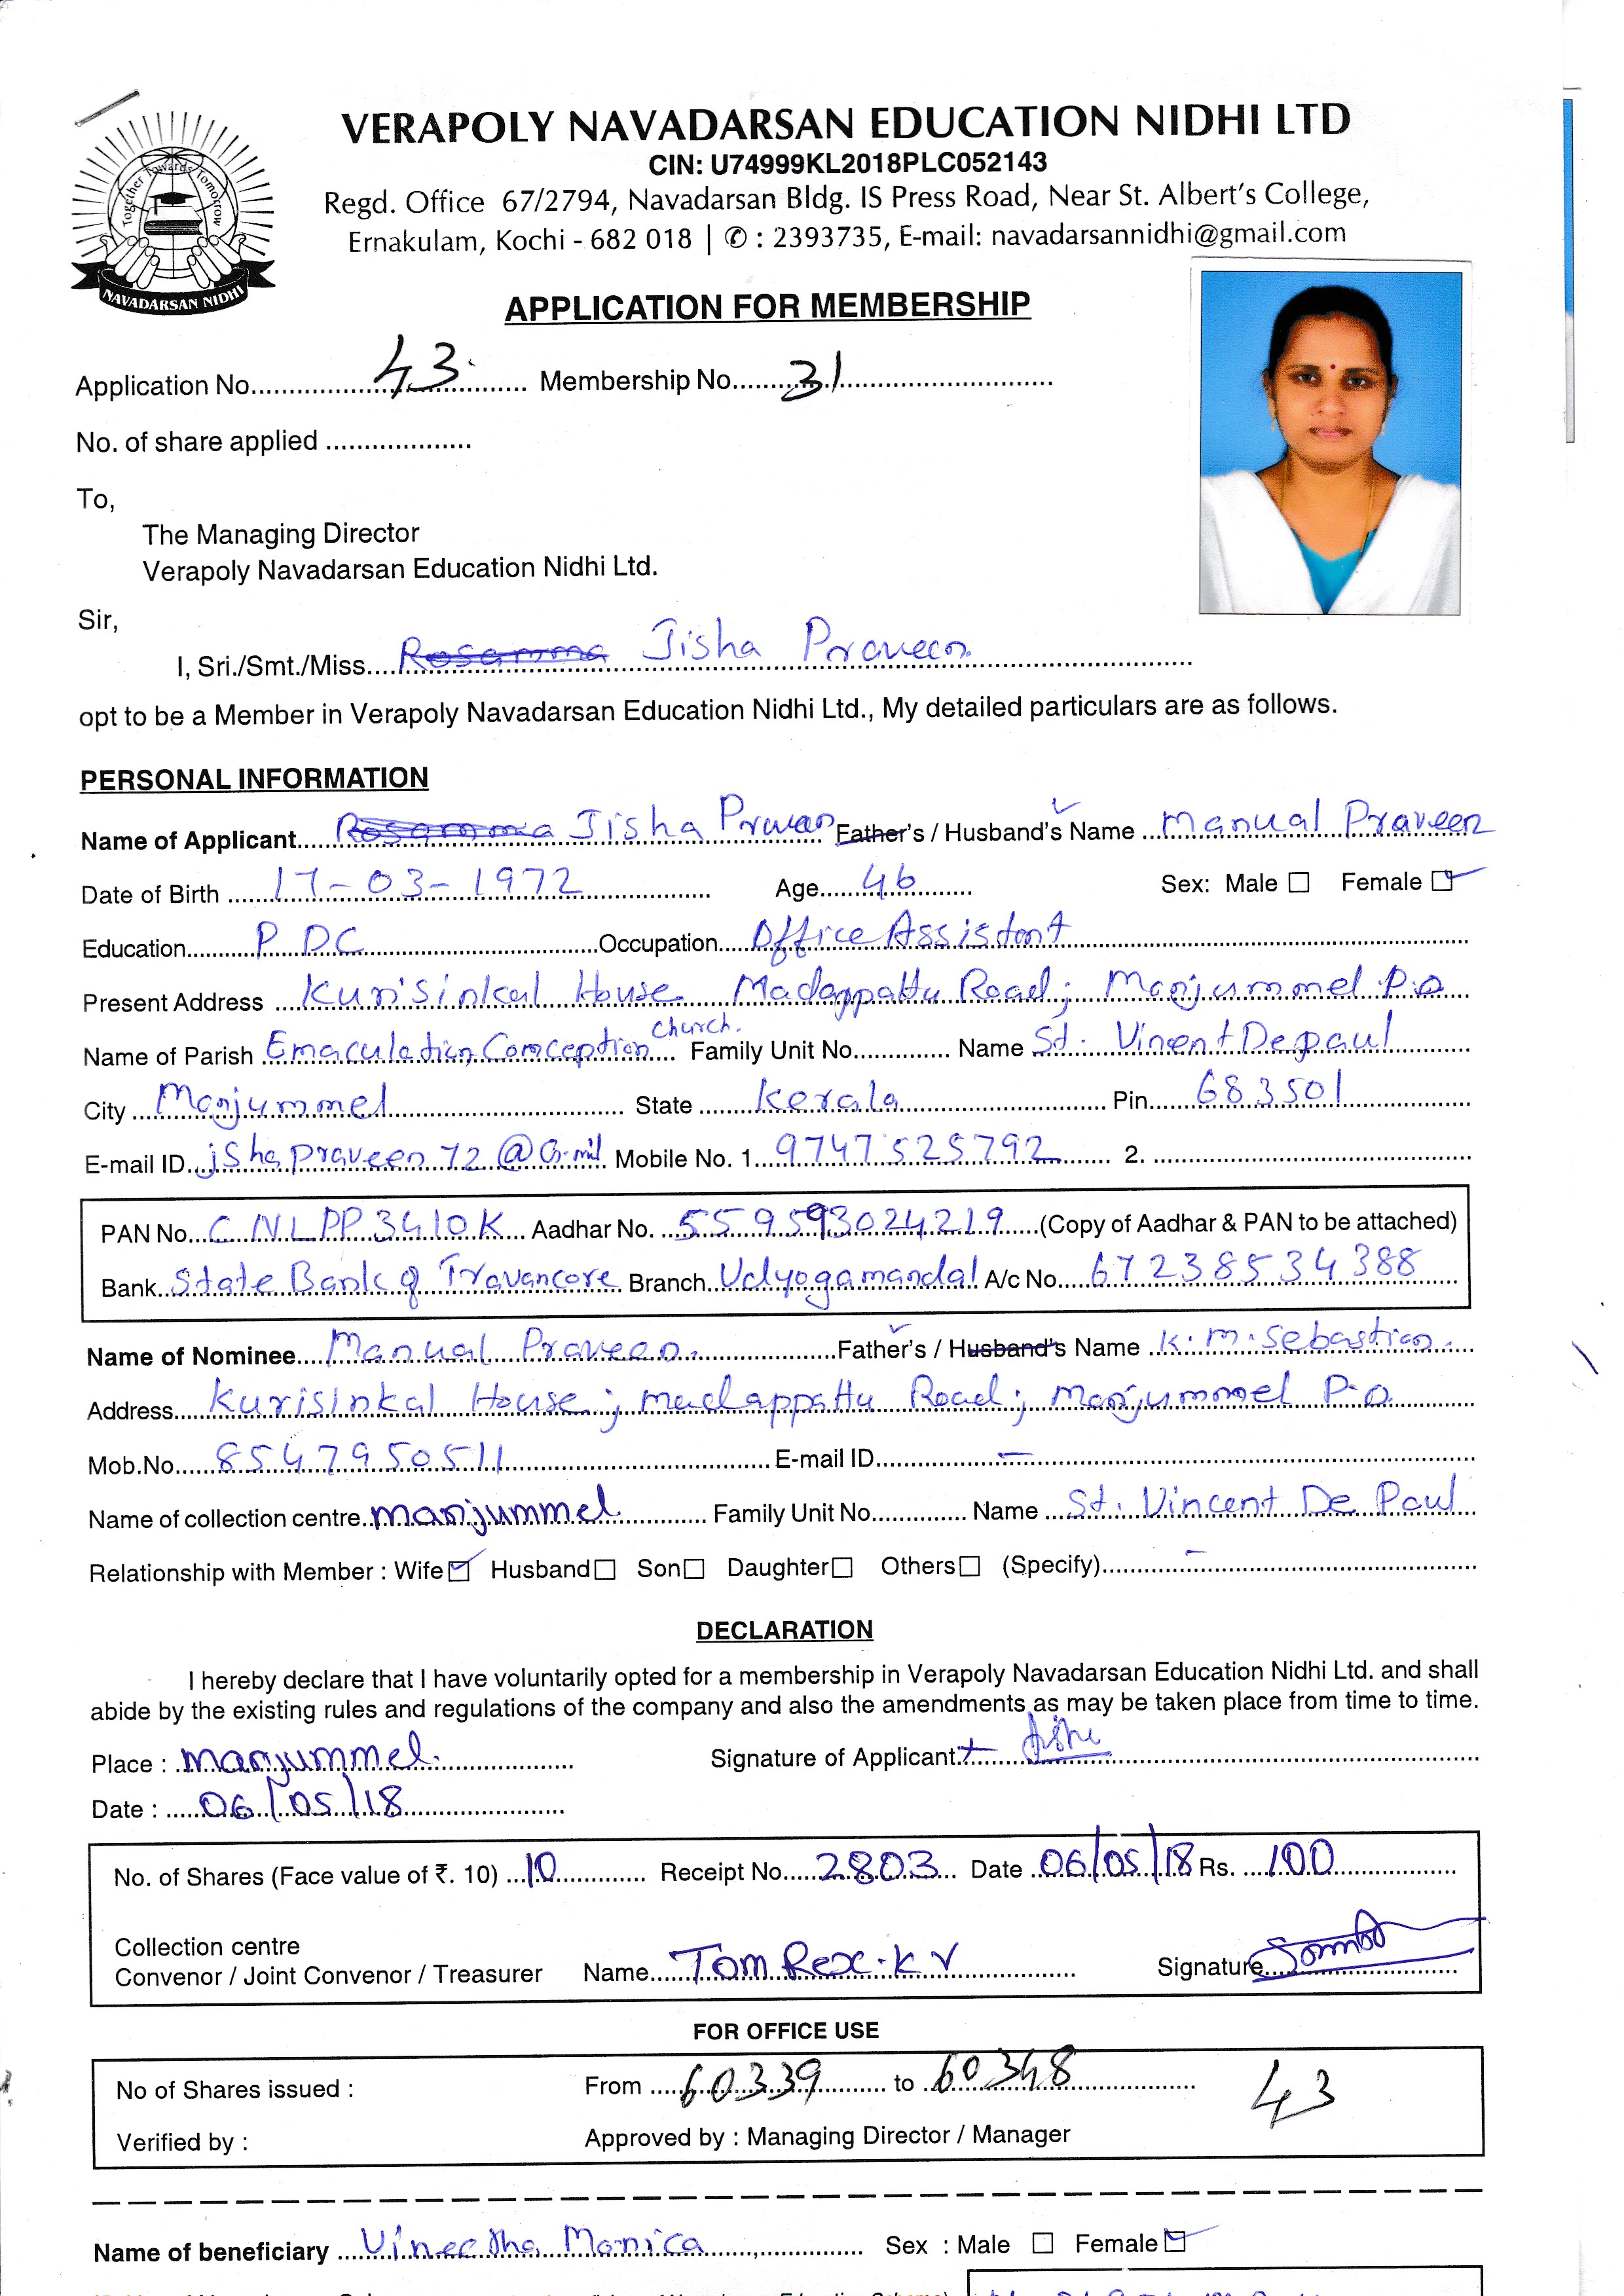 VERAPOLY NAVADARSAN EDUCATION NIDHI LTD
CIN: U74999KL2018PLC052143
Regd. Office 67/2794, Navadarsan Bldg. IS Press Road, Near St. Albert's College,
Ernakulam, Kochi - 682 018 | ✆ : 2393735, E-mail: navadarsannidhi@gmail.com
Together Towards Tomorrow
NAVADARSAN NIDHI
APPLICATION FOR MEMBERSHIP
Application No. 43 Membership No. 31
No. of share applied
To,
The Managing Director
Verapoly Navadarsan Education Nidhi Ltd.
Sir,
I, Sri./Smt./Miss. Rosamma Jisha Praveen
opt to be a Member in Verapoly Navadarsan Education Nidhi Ltd., My detailed particulars are as follows.
PERSONAL INFORMATION
Name of Applicant Rosamma Jisha Father's / Husband's Name Manual Praveen
Date of Birth 17-03-1972 Age 46 Sex: Male ☐ Female ☑
Education P D C Occupation Office Assistant
Present Address Kurisinkal House Madappattu Road; Manjummel P.O
Name of Parish Emaculation Comception Church. Family Unit No. Name St. Vincent Depaul
City Manjummel State Kerala Pin 683501
E-mail ID jShapraveen72@G-mil Mobile No. 1. 9747525792 2.
PAN No. CNLPP3410K Aadhar No. 559593024219 (Copy of Aadhar & PAN to be attached)
Bank State Bank of Travancore Branch Udyogamandal A/c No. 67238534388
Name of Nominee Manual Praveen. Father's / Husband's Name K.M.Sebastian.
Address Kurisinkal House; madappattu Road; Manjummel P.O.
Mob.No. 8547950511 E-mail ID —
Name of collection centre manjummel Family Unit No. Name St. Vincent De Paul
Relationship with Member : Wife ☑ Husband ☐ Son ☐ Daughter ☐ Others ☐ (Specify) –
DECLARATION
I hereby declare that I have voluntarily opted for a membership in Verapoly Navadarsan Education Nidhi Ltd. and shall
abide by the existing rules and regulations of the company and also the amendments as may be taken place from time to time.
Place : manjummel. Signature of Applicant
Date : 06/05/18
No. of Shares (Face value of ₹. 10) 10 Receipt No. 2803 Date 06/05/18 Rs. 100
Collection centre
Convenor / Joint Convenor / Treasurer Name Tom Rex.K V Signature
FOR OFFICE USE
No of Shares issued : From 60339 to 60348 43
Verified by : Approved by : Managing Director / Manager
Name of beneficiary Vineetha Monica Sex : Male ☐ Female ☑